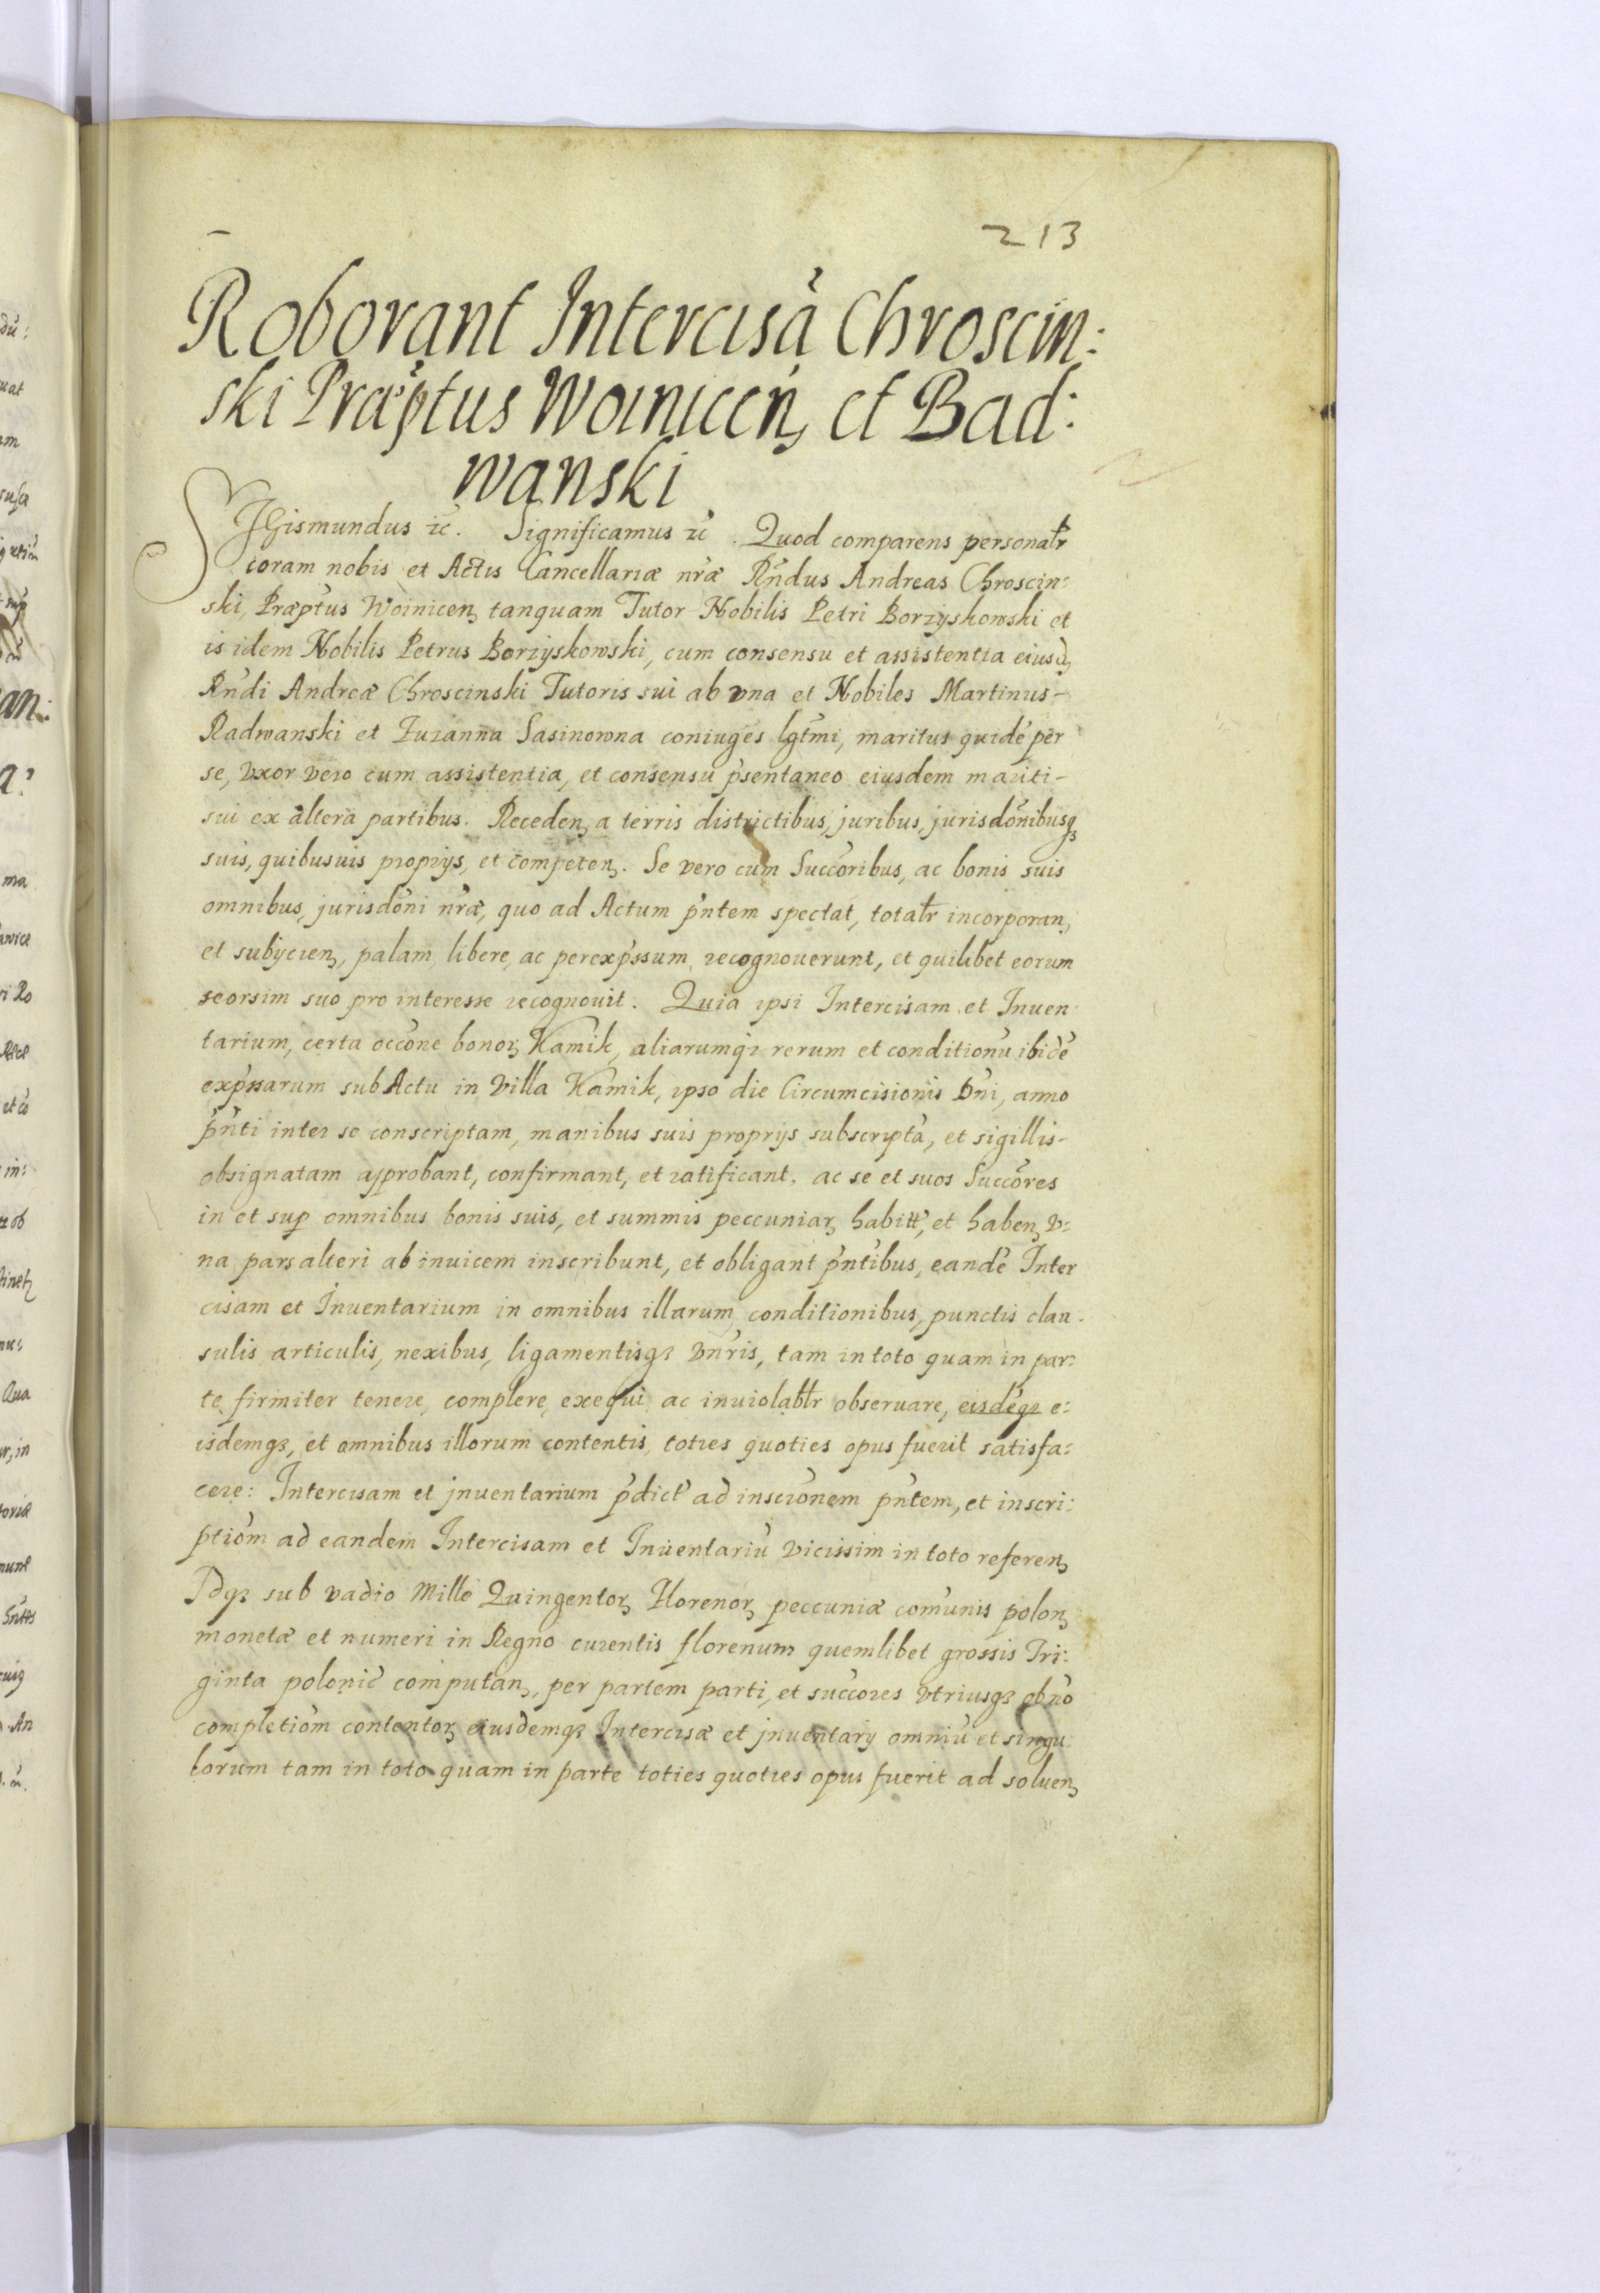 213
Roborant Intercisā Chroscin:
ski Præptus Woinicen et Bad:
wanski
SIGismundus ꝛc. Significamus ꝛc. Quod comparens personalr
coram nobis et Actis Cancellariæ nr̃æ Rñdus Andreas Chroscin:
ski, Præptus Woinicen tanquam Tutor Nobilis Petri Borzyskowski et
is idem Nobilis Petrus Borzyskowski, cum consensu et assistentia eiusd
Rñdi Andreæ Chroscinski Tutoris sui ab vna et Nobiles Martinus-
Radwanski et Zuzanna Sasinowna coniuges lgt̃mi, maritus quidē per
se, vxor vero cum assistentia, et consensu p̃sentaneo eiusdem mariti-
sui ex altera partibus. Receden a terris districtibus, juribus, jurisdōnibusqȝ
suis, quibusuis proprys, et competen. Se vero cum Succōribus, ac bonis suis
omnibus, jurisdōni nr̃æ, quo ad Actum p̃ntem spectat, totalr incorporan,
et subycien, palam libere, ac perexp̃ssum recognouerunt, et quilibet eorum
seorsim suo pro interesse recognouit. Quia ipsi Intercisam et Inuen
tarium, certa occōne bonor Kamik, aliarumqȝ rerum et conditionū ibidē
exp̃ssarum sub Actu in Villa Kamik, ipso die Circumcisionis Dñi, anno
p̃nti inter se conscriptam, manibus suis proprys subscriptā, et sigillis-
obsignatam approbant, confirmant, et ratificant, ac se et suos Succōres
in et sup omnibus bonis suis, et summis peccuniar habitt, et haben v:
na pars alteri ab inuicem inscribunt, et obligant p̃ntibus, eandē Inter
cisam et Inuentarium in omnibus illarum conditionibus, punctis clau-
sulis articulis, nexibus, ligamentisqȝ vñris, tam in toto quam in par:
te firmiter tenere, complere, exequi ac inuiolabłr obseruare, eisdēqȝ e:
isdemqȝ, et omnibus illorum contentis toties quoties opus fuerit satisfa:
cere: Intercisam et jnuentarium p̃dict ad inscrōnem p̃ntem, et inscri:
ptiōm ad eandem Intercisam et Inuentariū vicissim in toto referen
Idqȝ sub vadio Mille Quingentor Florenor peccuniæ comunis polon
monetæ et numeri in Regno curentis florenum quemlibet grossis Tri:
ginta polonic computan, per partem parti, et succores vtriusqȝ ob nō
completiōm contentor eiusdemqȝ Intercisæ et jnuentary omniū et singu
lorum tam in toto quam in parte toties quoties opus fuerit ad soluen